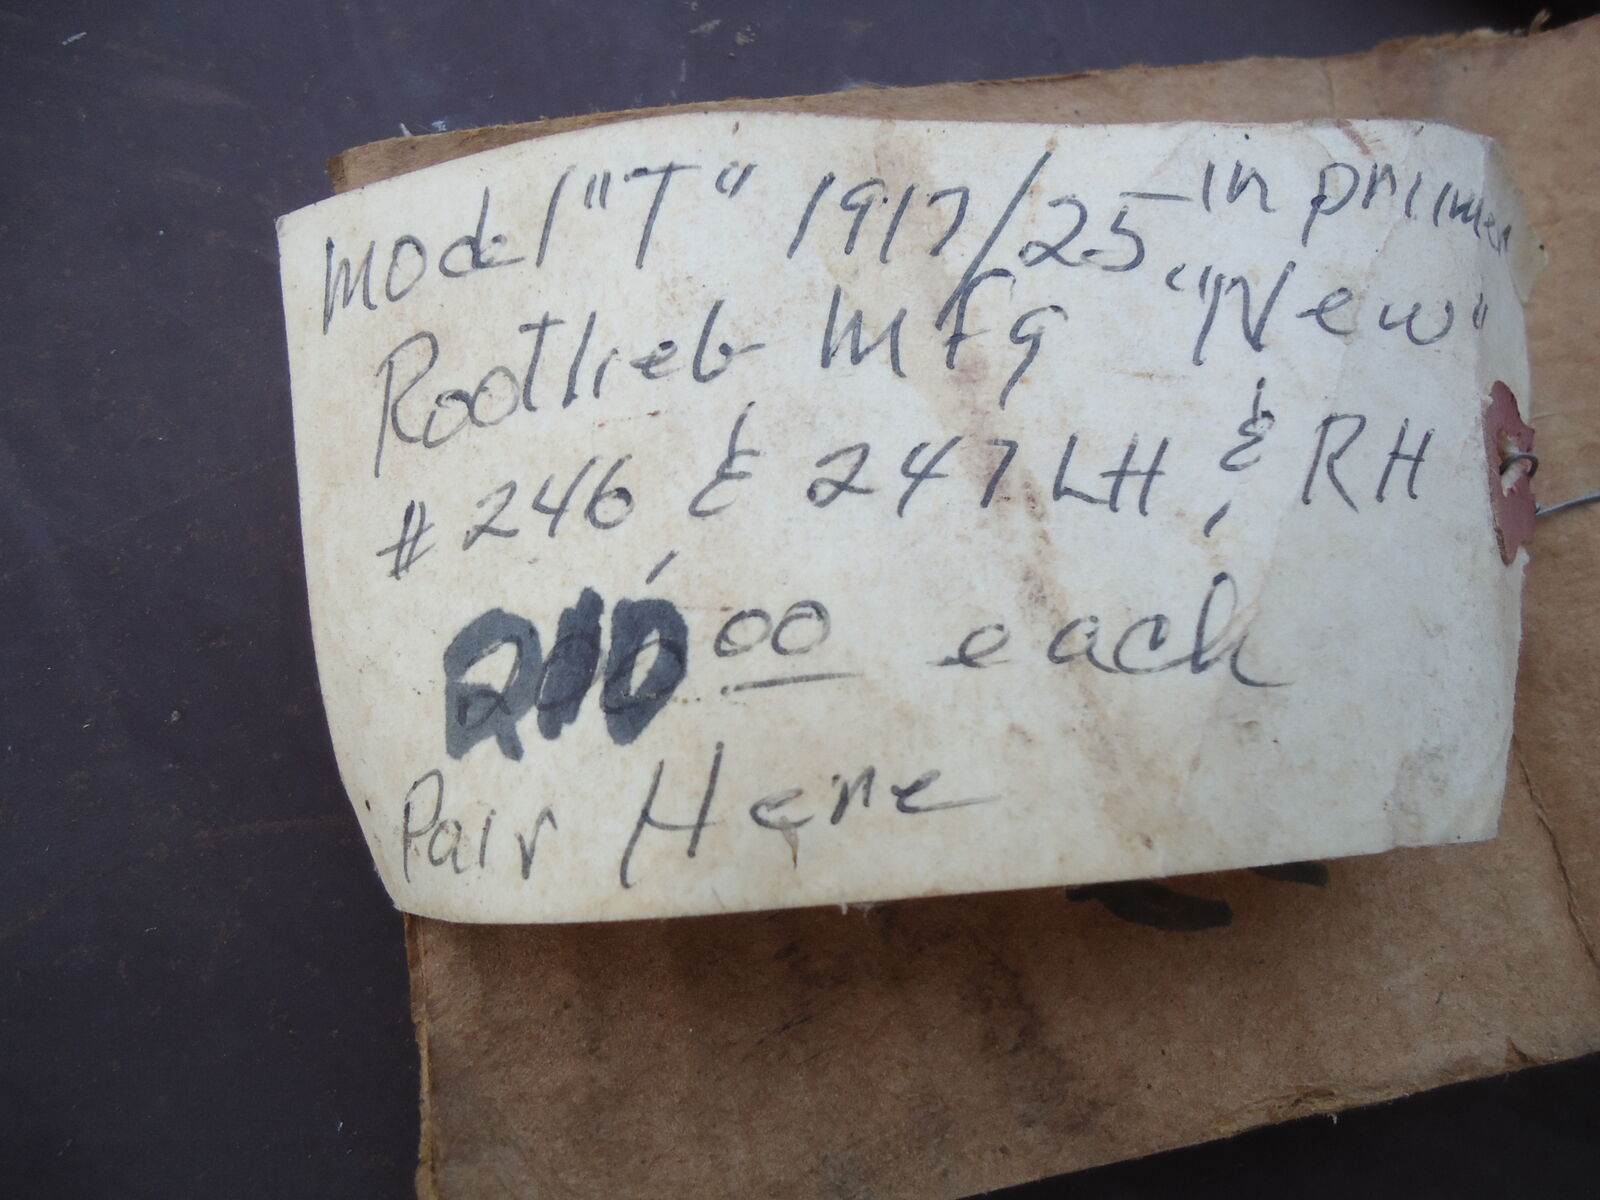 Model "T" 1917/25 in primer
Rootlieb Mfg "New"
# 246 & 247 LH & RH
00 each
Pair Here